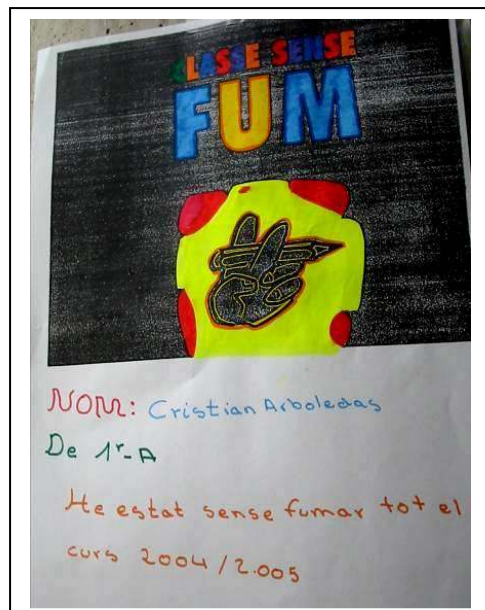 CLASSE SENSE
FUM
NOM: Cristian Arboledas
De 1r-A
He estat sense fumar tot el
curs 2004/2.005